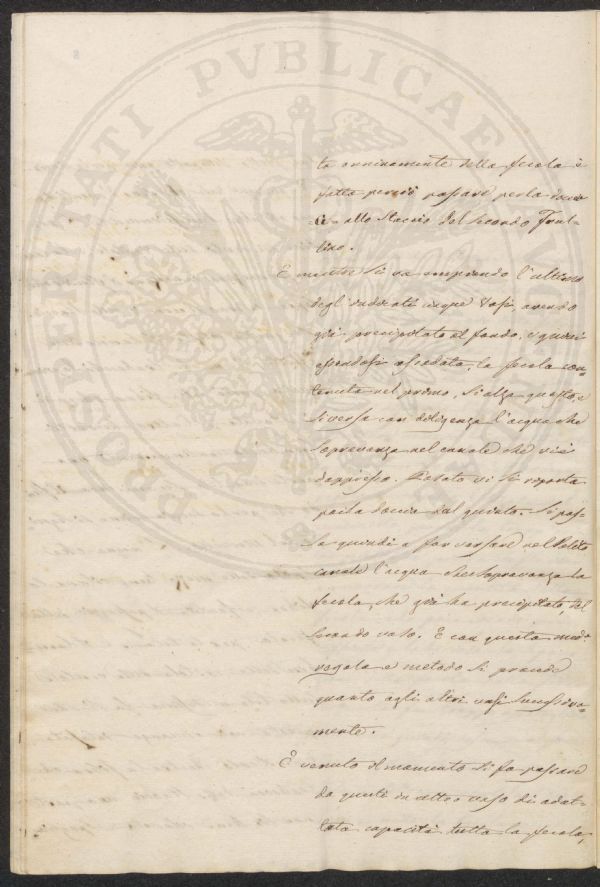 PROSPERITATI PVBLICAE
8
ta onninamente della fecola è
fatta perciò passare per la doccia
allo Staccio del secondo Trul-
lino.
E mentre si va empiendo l'ultimo
degli indicati cinque Vasi, avendo
già precipitato al fondo, e quasi
essendosi assodata, la fecola con-
tenuta nel primo, Si alza questo, e
si versa con diligenza l'acqua che
sopravanza nel canale che vi è
dappresso. Posato vi si riporta
poi la doccia dal quinto. Si pas-
sa quindi a far versare nel Solito
canale l'acqua che sopravanza la
fecola, che già ha precipitato, del
secondo vaso. E con questa medª
regola e metodo si procede
quanto agli altri vasi successiva-
mente.
E venuto il momento si fa passare
da questi in altro vaso di adat-
tata capacità tutta la fecola,